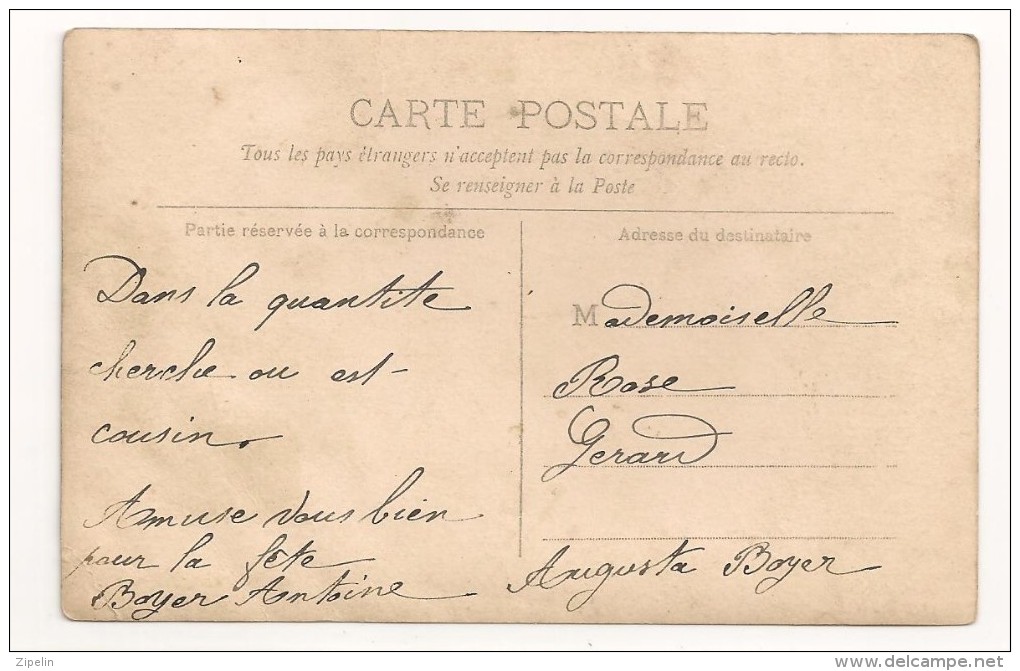 CARTE POSTALE
Tous les pays étrangers n'acceptent pas la correspondance au recto.
Se renseigner à la Poste
Partie réservée à la correspondance
Dans la quantite
cherche ou est
cousin.
Amuse vous bien
pour la fête
Boyer Antoine
Adresse du destinataire
Mademoiselle
Rose
Gerard
Augusta Boyer
Zipelin
delcampe.net